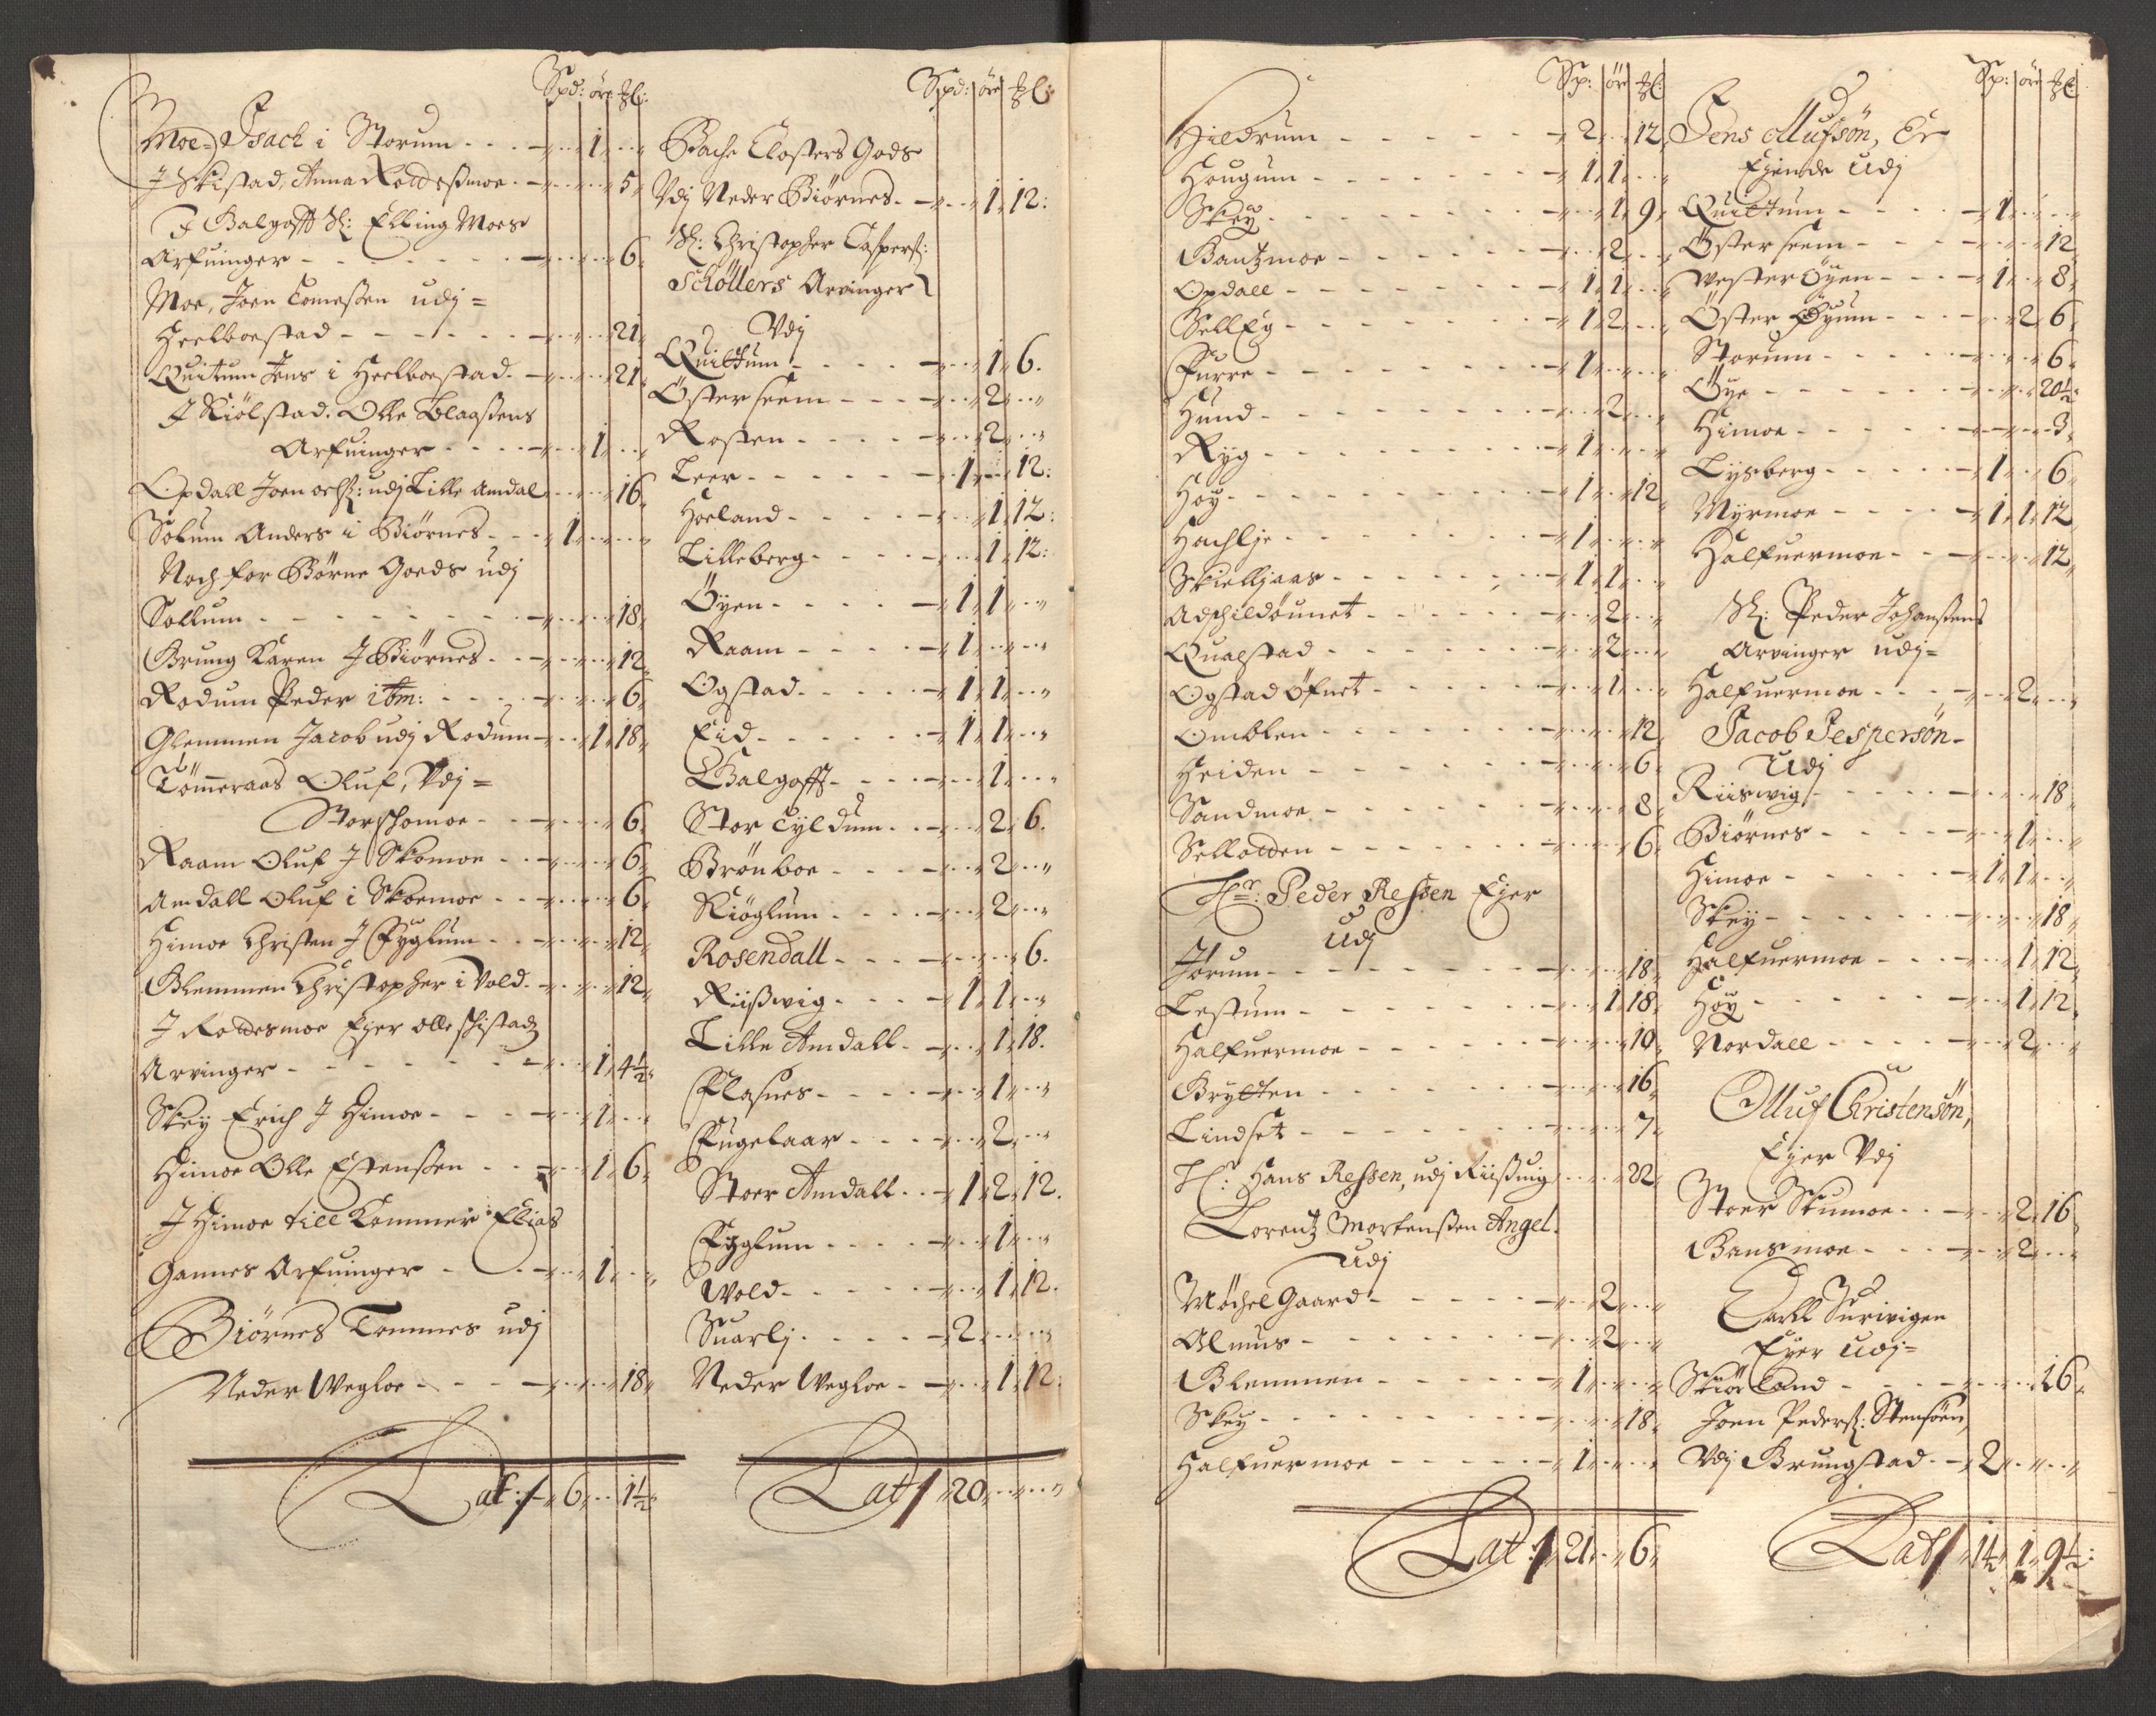 Spd: öre ₰l:
Moe= Isach i Storum - - - 1
J Skistad, Anna Roddeßmoe - 5
J Galgofft Sl: Elling Moes
Arfuinger - - - 6
Moe, Joen Tomeßen udj =
Heelboestad - - - 21
Quitum Jens i Heelboestad - 21
J Kiölstad. Olle Blaaßens
Arfuinger - - - 1
Opdall Joen oelß: udj Lille Amdal 16
Solum Anders i Biörnes - - 1
Noch for Börne Goeds udj
Sollum - - - 18
Grung Karen J Biörnes - - 12
Rodum Peder ibm: - - - 6
Glemmen Jacob udj Rodum - 1 18
Tömeraas Oluf, Vdj =
Storskomoe - - - 6
Raam Oluf J Skomoe - - 6
Amdall Oluf i Skoemoe - - 6
Himoe Christen J Fyglum - - 12
Glemmen Christopher i Vold - 12
J Roddesmoe Ejer olle schistadz
Arvinger - - - 1 4½
Skey Erich J Himoe - - - 1
Himoe Olle Estenßen - - 1 6
J Himoe till Kommer Elias
Gannes Arfuinger - - 1
Biörnes Tommes udj
Neder Wegloe - - - 18
Lat: 6 1½
Spd: öre ₰l:
Bache Closters Gods
Vdj Neder Biörnes - 1 12:
Sl: Christopher Caspersß:
Schöllers Arvinger
Vdj
Quittum - - - 1 6.
Öster seem - - - 2
Rosten - - - 2
Leer - - - 1 12:
Hoeland - - - 1 12:
Lilleberg - - - 1 12:
Öyen - - - 1 1
Raam - - - 1
Ogstad - - - 1 1
Eid - - - 1 1
Galgofft - - - 1
Stor Tyldum - - 2 6.
Brönboe - - - 2
Kiöglum - - - 2
Rosendall - - - 6.
Riißwig - - - 1 1
Lille Amdall - 1 18.
Flasnes - - - 1
Fugelaar - - - 2
Stoer Amdall - - 1 2 12.
Fyglum - - - 1
Wold - - - 1 12.
Suarlj - - - 2
Neder Wegloe - 1 12:
Lat 20
Sp: öre ₰l:
Hildrum - - - 2 12
Hougum - - - 1 1
Skey - - - 1 9
Bautzmoe - - - 2
Opdall - - - 1 1
Sell Eg - - - 1 2
Furre - - - 1
Hund - - - 2
Ryg - - - 1
Høy - - - 1 12
Hachlje - - - 1
Skielljaas - - - 1 1
Adschildöunet - - - 2
Qualstad - - - 2
Ogstad Öfnet - - - 1
Omblen - - - 12
Heiden - - - 6
Sandmoe - - - 8
Sellodden - - - 6
Hr: Peder Reßen Ejer
Udj
Jörum - - - 18
Lestum - - - 1 18
Halfuermoe - - - 10
Brytten - - - 16
Lindset - - - 7
Hr: Hans Reßen, udj Riißuig 22
Lorentz Mortenßen Angel.
Udj
Möchel Gaard - - - 2
Almus - - - 2
Glemmen - - - 1
Skey - - - 18
Halfuermoe - - - 1
Lat 21 6
Sp: öre ₰l
Jens Olufsön, Er
Ejende Udj
Quittum - - - 1
Öster seem - - - 12
Wester Öyen - - - 1 8
Öster Öyum - - - 2 6
Storum - - - 6
Öye - - - 20½
Himoe - - - 3
Lysberg - - - 1 6
Myrmoe - - - 1 1 12
Halfuermoe - - - 12
Sl: Peder Johanßens
Arvinger udj =
Halfuermoe - - - 2
Jacob Jespersön -
Udj
Riiswig - - - 18
Biörnes - - - 1
Himoe - - - 1 1
Skey - - - 18
Halfuermoe - - - 1 12
Høy - - - 1 12
Nordall - - - 2
Olluf Christensön,
Ejer Vdj
Stoer Skumoe - - 2 16
Bansmoe - - - 2
Carll Surivigen
Ejer udj =
Skiörland - - - 16
Joen Pedersß: Stensöen,
Vdj Grungstad - - 2
Lat 14 1 9½: